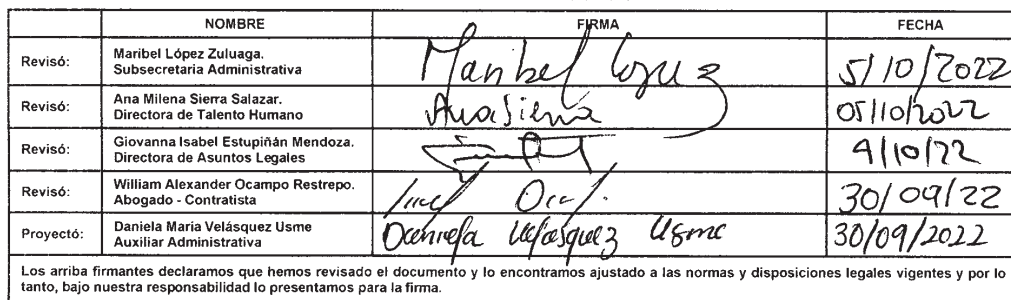 NOMBRE FIRMA FECHA
Revisó: Maribel López Zuluaga.
Subsecretaria Administrativa
Maribel López Z 5/10/2022
Revisó: Ana Milena Sierra Salazar.
Directora de Talento Humano
Ana Sierra 05/10/2022
Revisó: Giovanna Isabel Estupiñán Mendoza.
Directora de Asuntos Legales
4/10/22
Revisó: William Alexander Ocampo Restrepo.
Abogado - Contratista
30/09/22
Proyectó: Daniela María Velásquez Usme
Auxiliar Administrativa
Daniela Velásquez Usme 30/09/2022
Los arriba firmantes declaramos que hemos revisado el documento y lo encontramos ajustado a las normas y disposiciones legales vigentes y por lo
tanto, bajo nuestra responsabilidad lo presentamos para la firma.